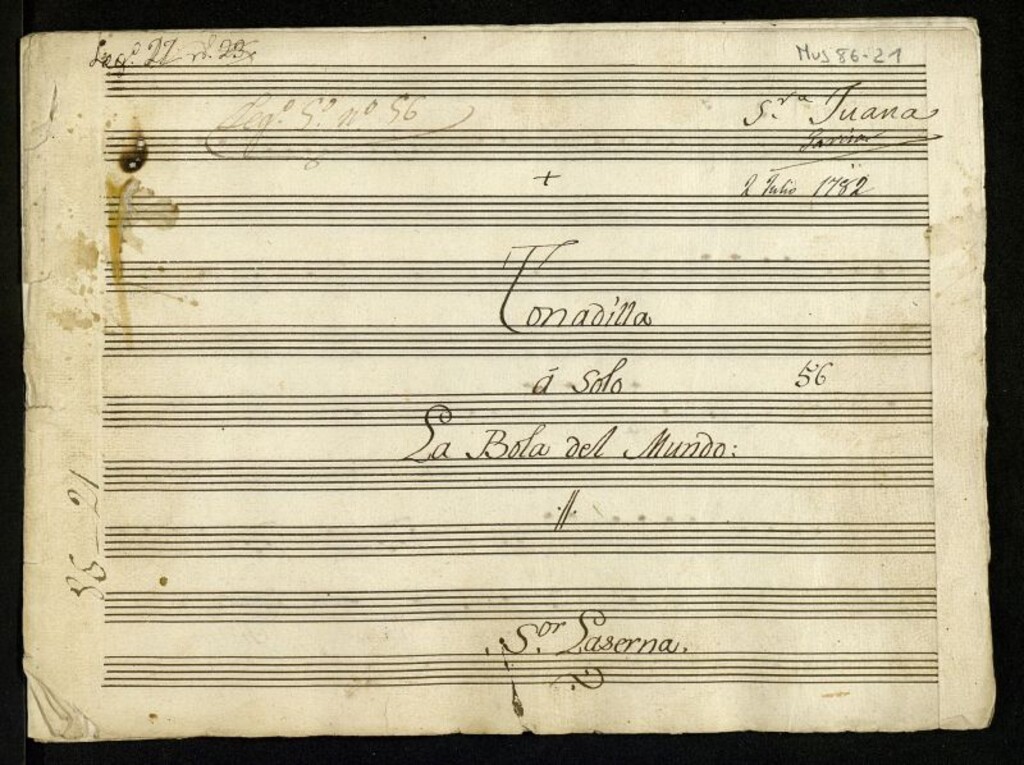 Leg.º 27 nº. 23
Mus 86-21
Leg.º 5.º nº 56
S.ra Juana
2 Julio 1782
+
Tonadilla
á Solo
56
La Bola del Mundo:
//
S.or Laserna.